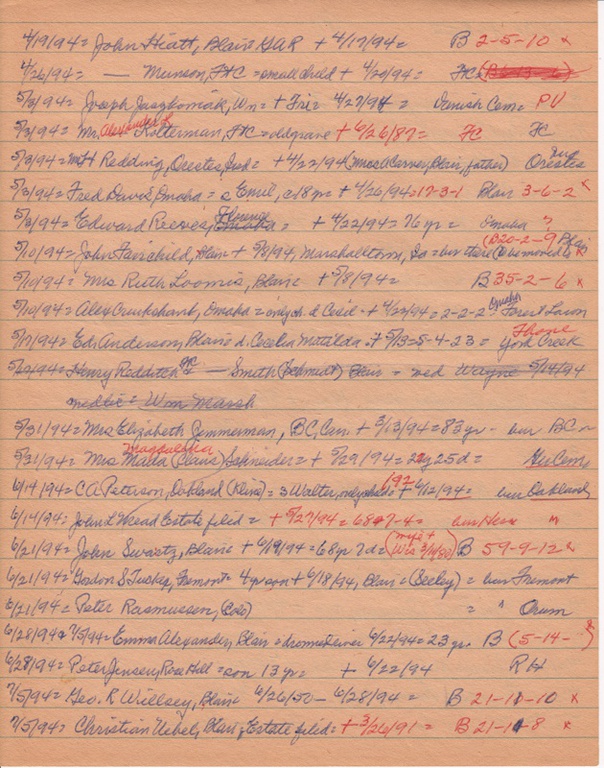 4/19/94 = John Hiatt, Blair GAR + 4/17/94 = B 2-5-10 x
4/26/94 = — Munson, FtC = small child + 4/20/94 = FC
5/3/94 = Joseph + Fri = 4/27/94 = Danish Cem = PV
5/3/94 = Mr. Alexander Kolterman, FtC = old grave + 6/26/87 = FC FC
5/3/94 = Redding, Orestes, Ind = + 4/22/94 (Mrs A Carver, Blair, father) Orestes Ind
5/3/94 = Fred Davis, Omaha = c Emil, 18 yr + 4/26/94 = 17-3-1 Blair 3-6-2 x
5/3/94 = Edward Reeves, Florence Omaha = + 4/22/94 = 76 yr = Omaha "
5/10/94 = John Fairchild, Blair + 5/8/94, Marshalltown, Ia = bur there (to be moved to B20-2-9 Blair x
5/10/94 = Mrs Ruth Loomis, Blair + 5/8/94 = B 35-2-6 x
5/10/94 = Alex Cruikshank, Omaha = only ch. d Cecil + 4/22/94 = 2-2-2 Forest Lawn
5/17/94 = Ed. Anderson, Blair = d. Cecelia Matilda + 5/13 = 5-4-23 = York Creek
5/24/94 = Henry Redditch — Smith (Schmidt) Blair = med Wayne 5/14/94
medic = Wm Marsh
5/31/94 = Mrs Elizabeth Zimmerman, BC, Can. + 3/13/94 = 83 yr - bur BC
5/31/94 = Mrs Magdalena Malla (Claus) Schneider = + 5/29/94 = 25d = Cem,
6/14/94 = C.A. Peterson, Oakland = s Walter, only child = + 6/12/94 = bur Oakland
6/14/94 = John L Mead Estate filed = + 5/27/94 = 68-7-4 = bur
6/21/94 = John Swartz, Blair + 6/19/94 = 68 yr 7d = B 59-9-12 x
6/21/94 = Gordon S Tuckey, Fremont = 4 yr son + 6/18/94, Blair = (Seeley) = bur Fremont
6/21/94 = Peter Rasmussen, (Colo) = " Orum
6/28/94 & 7/5/94 = Emma Alexander, Blair = drowned river 6/22/94 = 23 yr. B (5-14- )
6/28/94 = Peter Jensen, Rose Hill = son 13 yr = + 6/22/94 RH
7/5/94 = Geo. R Willsey, Blair 6/26/50 - 6/28/94 = B 21-11-10 x
7/5/94 = Christian Uebel, Blair, Estate filed = + 3/26/91 = B 21-11-8 x